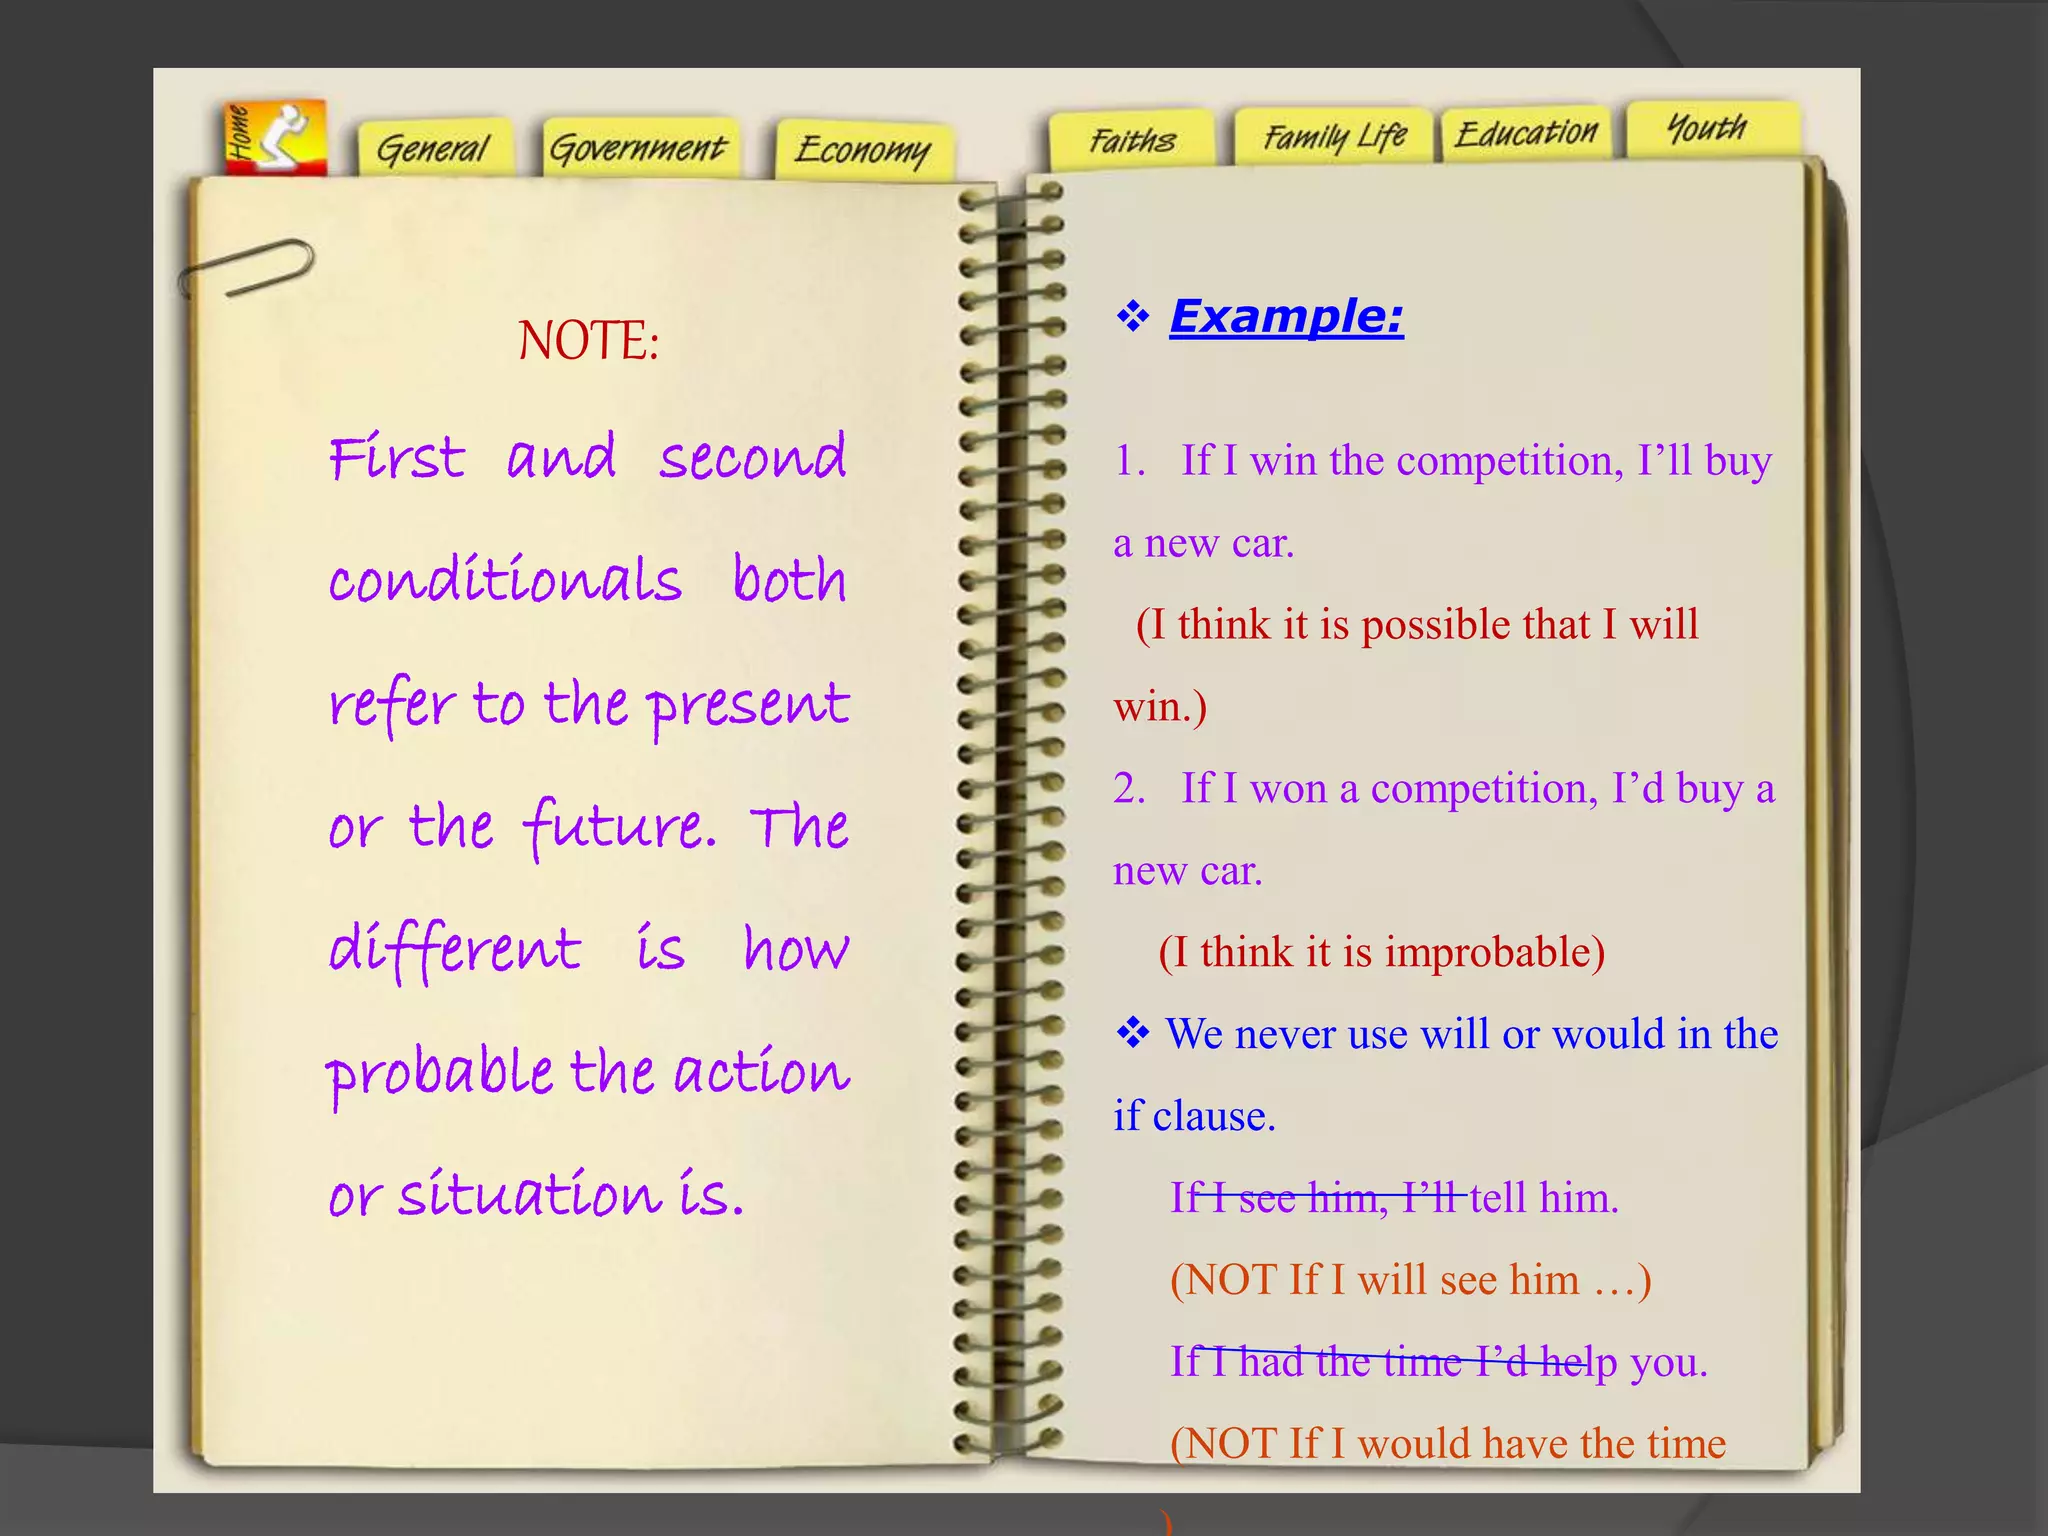 Home
General
Government
Economy
Faiths
Family Life
Education
Youth
NOTE:
First and second
conditionals both
refer to the present
or the future. The
different is how
probable the action
or situation is.
❖ Example:
1. If I win the competition, I’ll buy
a new car.
(I think it is possible that I will
win.)
2. If I won a competition, I’d buy a
new car.
(I think it is improbable)
❖ We never use will or would in the
if clause.
If I see him, I’ll tell him.
(NOT If I will see him …)
If I had the time I’d help you.
(NOT If I would have the time
)